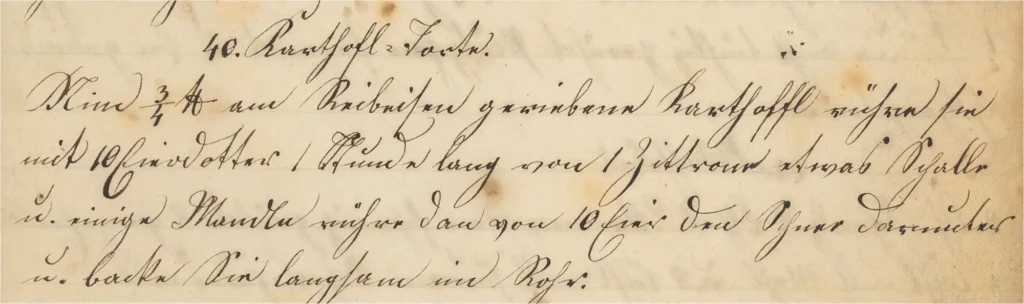 40. Karthofl-Torte.
Nim 3/4 ℔ am Reibeisen geriebene Karthoffl rühre sie
mit 10 Eierdotter 1 Stunde lang von 1 Zittrone etwas Schalle
u. einige Mandln rühre dan von 10 Eier den Schnee darunter
u. backe Sie langsam im Rohr.